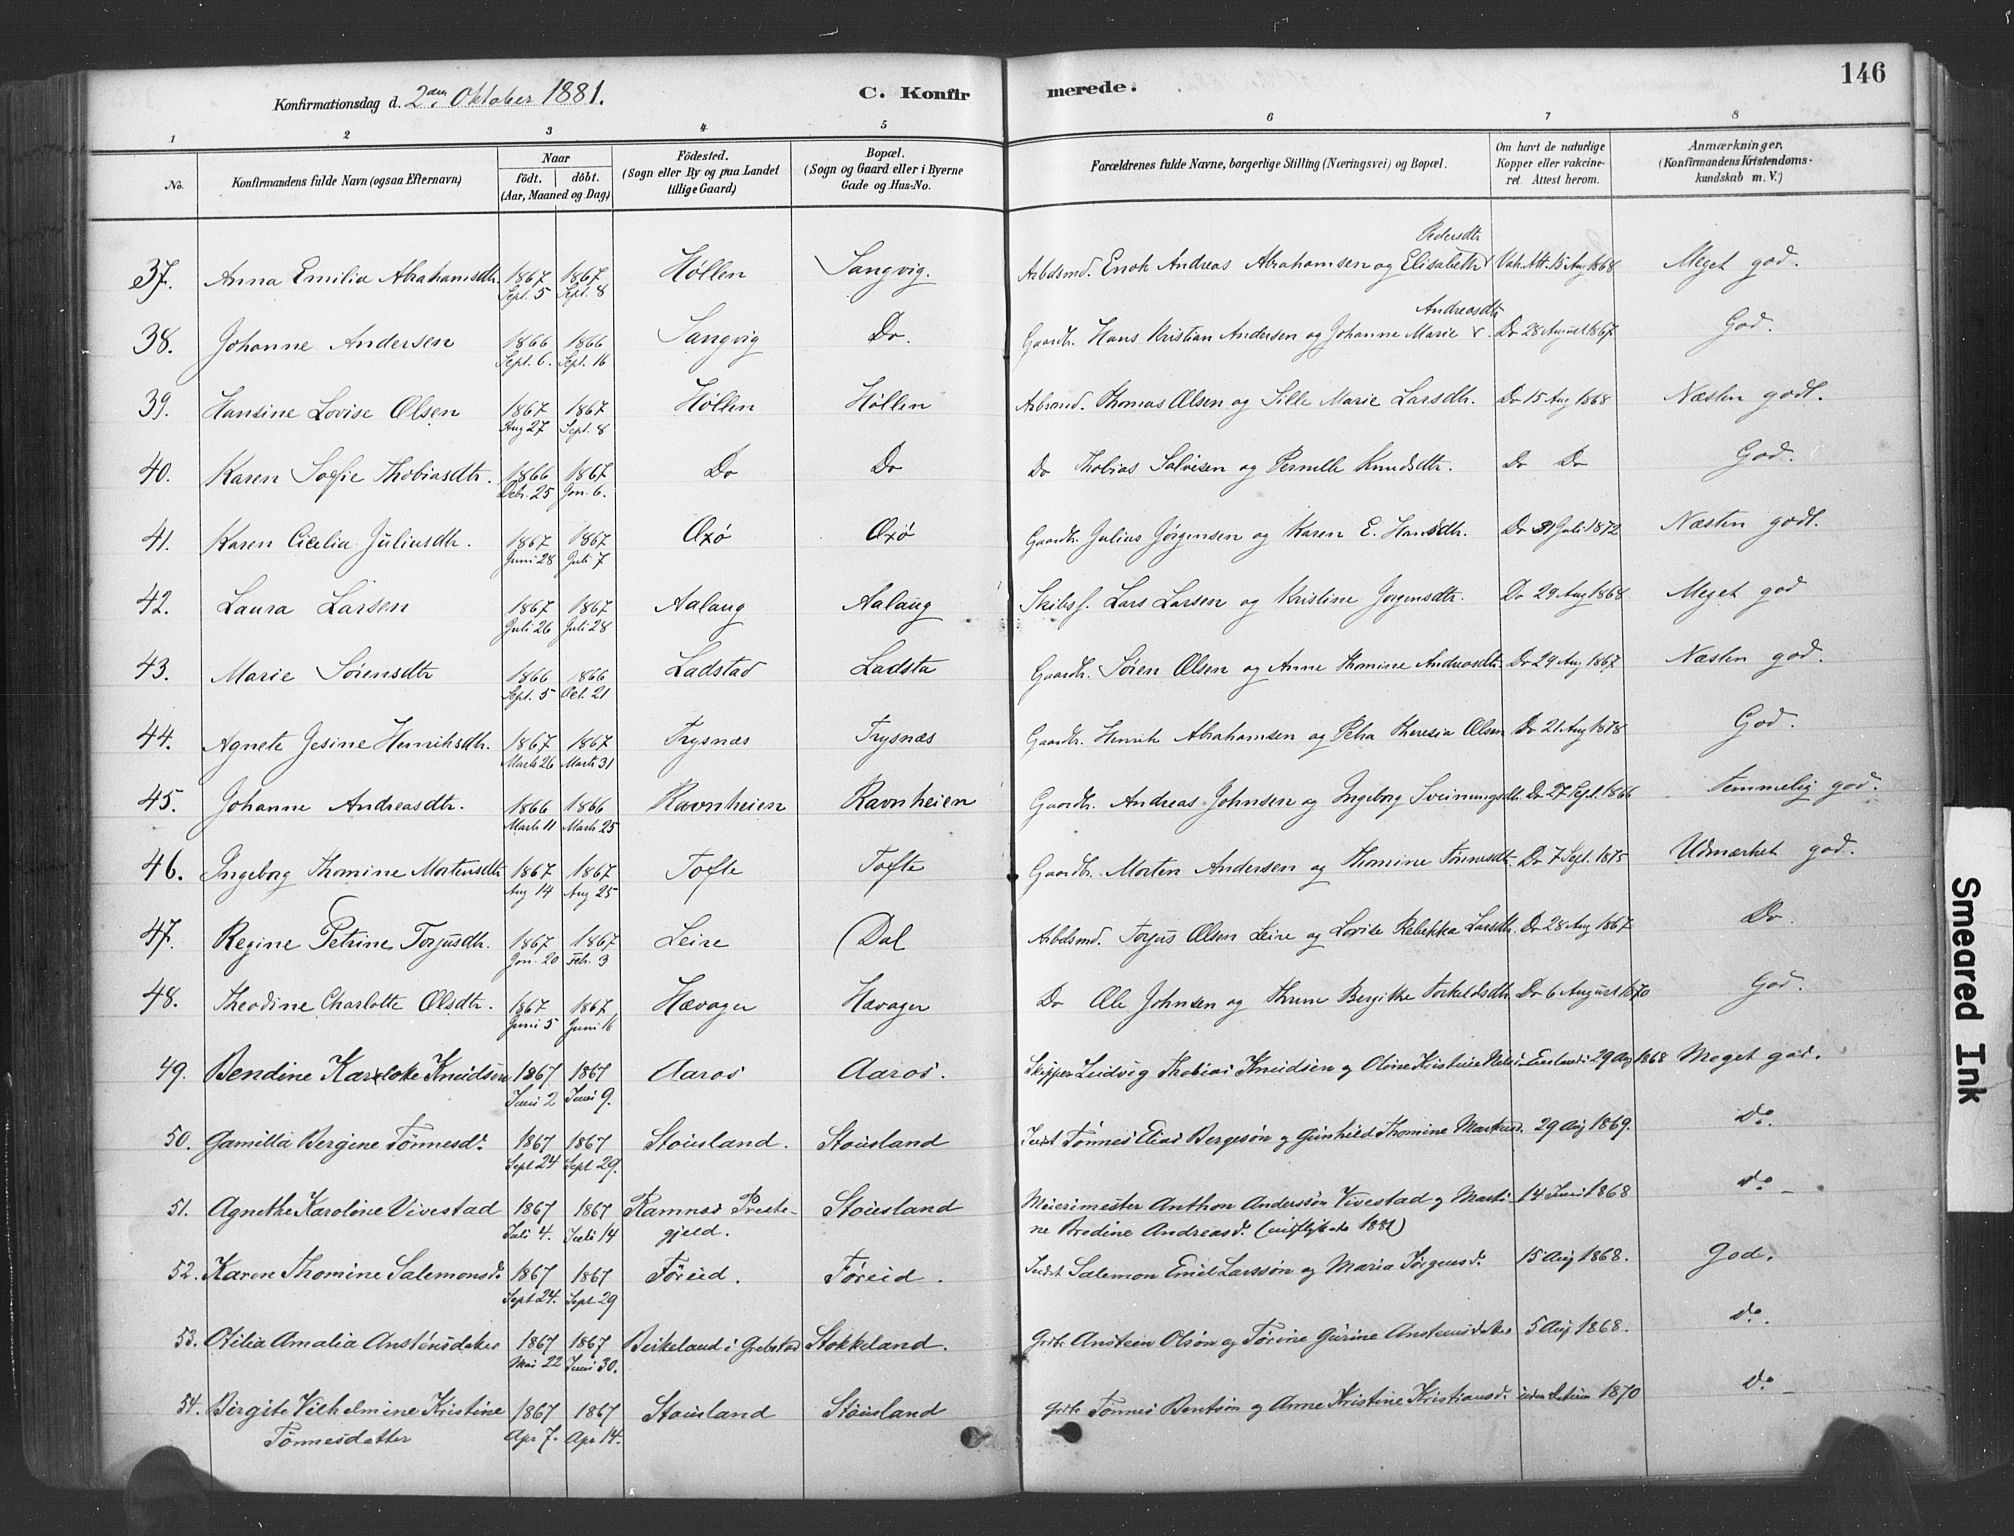 146
Konfirmationsdag d. 2den Oktober 1881.
C. Konfirmerede.
1 2 3 4 5 6 7 8
No.
Konfirmandens fulde Navn (ogsaa Efternavn)
Naar
födt. döbt.
(Aar, Maaned og Dag)
Födested.
(Sogn eller By og paa Landet
tillige Gaard)
Bopæl.
(Sogn og Gaard eller i Byerne
Gade og Hus-No.
Forældrenes fulde Navne, borgerlige Stilling (Næringsvei) og Bopæl.
Om havt de naturlige
Kopper eller vakcine-
ret. Attest herom.
Anmærkninger,
(Konfirmandens Kristendoms-
kundskab m. V.)
Pedersdtr
37. Anna Emilia Abrahamsdtr. 1867 1867 Høllen Sangvig. Arbdsmd. Enok Andreas Abrahamsen og Elisabeth Vak. Att. 15 Aug 1868 Meget god.
Sept. 5 Sept. 8
Andreasdtr
38. Johanne Andersen 1866 1866 Sangvig Do. Gaardbr. Hans Kristian Andersen og Johanne Marie Do 28 August 1867 God.
Sept. 6. Sept. 16
39. Hansine Lovise Olsen 1867 1867 Høllen Høllen Arbsmd. Thomas Olsen og Sille Marie Larsdtr. Do 15 Aug 1868 Næsten godt.
Aug 27 Sept. 8
40. Karen Sofie Thobiasdtr. 1866 1867 Do Do Do Thobias Salvesen og Pernille Knudsdtr. Do Do God.
Debr. 25 Jan. 6.
41. Karen Cicelia Juliusdtr. 1867 1867 Oxø Oxø Gaardbr. Julius Jørgensen og Karen E. Hansdtr. Do 31 Juli 1872 Næsten godt.
Juni 28 Juli 7
42. Laura Larsen 1867 1867 Aalaug Aalaug Skibsf. Lars Larsen og Kristine Jorgensdtr. Do 29 Aug 1868 Meget god
Juli 26 Juli 28
43. Marie Sørensdtr 1866 1866 Ladstad Ladsta Gaardbr. Søren Olsen og Anne Thomine Andreasdtr. Do 29 Aug 1867 Næsten god.
Sept. 5 Oct. 21
44. Agnete Jesine Henriksdtr. 1867 1867 Trysnæs Trysnæs Gaardbr. Henrik Abrahamsen og Petra Theresia Olsen Do 21 Aug 1878 God.
Marts 26 Marts 31
45. Johanne Andreasdtr. 1866 1866 Ravnheien Ravnheien Gaardbr. Andreas Johnsen og Ingeborg Sveinungsdtr. Do 27 Sept. 1866 Temmelig god.
Marts 11 Marts 25
46. Ingeborg Thomine Mortensdtr 1867 1867 Tofte Tofte Gaardbr. Morten Andersen og Thomine Tønnesdtr. Do 7 Sept. 1875 Udmærket god.
Aug 14 Aug 25
47. Regine Petrine Torjusdtr. 1867 1867 Leire Dal Arbdsmd. Torjus Olsen Leire og Lovise Rebekka Larsdtr. Do 28 Aug 1867 Do.
Jan. 20 Feb. 3
48. Theodine Charlotte Olsdtr. 1867 1867 Hævager Hævager Do Ole Johnsen og Thrine Bergitte Torkeldsdtr. Do 6 August 1870 God.
Juni 5 Juni 16
49. Bendine Karloke Knudsen 1867 1867 Aaros Aaros. Skipper Ludvig Thobias Knudsen og Oline Kristine 29 Aug 1868 Meget god.
Juni 2 Juni 9.
50. Gamilla Bergine Tønnesdr. 1867 1867 Stousland. Stousland Indst Tønnes Elias Bergesøn og Gunhild Thomine Markusd. 29 Aug 1869. do.
Sept 24 Sept 29.
51. Agnethe Karoline Vivestad 1867 1867 Ramnæs Preste- Stousland Meierimester Anthon Anderssøn Vivestad og Marti- 14 Juni 1868 do.
Juli 4. Juli 14 gjeld. ne Bredine Andreasdr. (indflyttede 1881)
52. Karen Thomine Salemonsdr. 1867 1867 Føreid. Føreid. Indst Salemon Emil Larssøn og Maria Jørgensdr. 15 Aug 1868. God.
Sept 24. Sept 29
53. Otilia Amalia Anstensdatter 1867 1867 Birkeland i Grebstad Stokkeland. Grdbr Ansteen Olsøn og Tørine Gurine Anstensdatter 5 Aug 1868. do.
Mai 22 Juni 30.
54. Birgite Vilhelmine Kristine 1867 1867 Stousland Stousland grdbr Tønnes Bentsøn og Anne Kristine Kristiansdr. uden datum 1870 do
Tønnesdatter Apr 7. Apr 14.
Smeared Ink